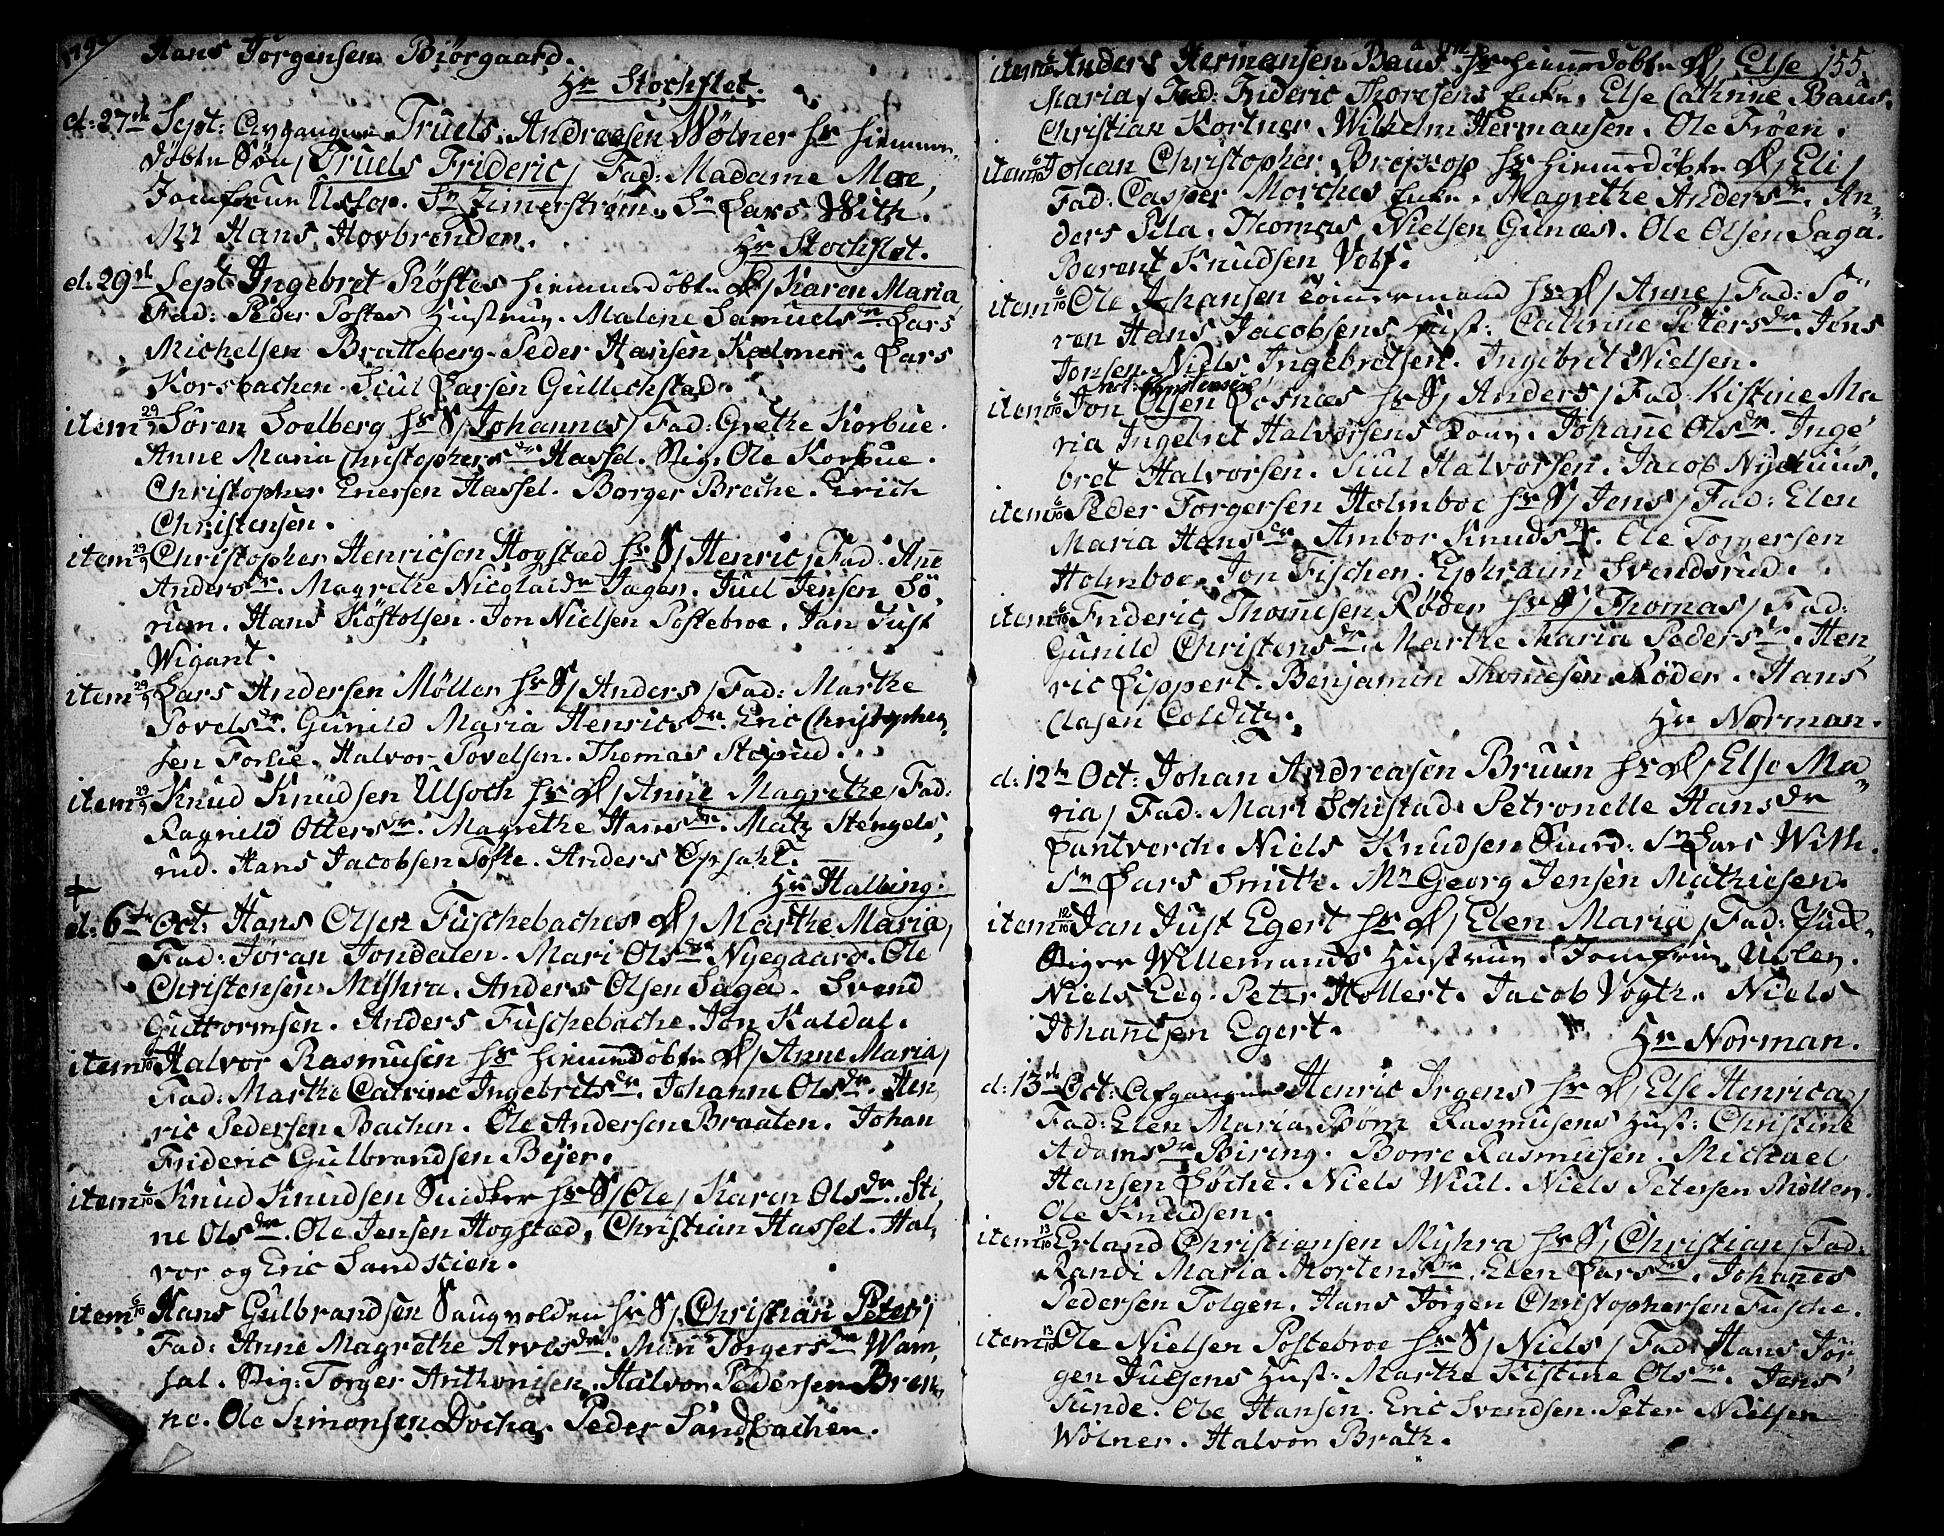 Hans Jørgensen Biørgaard.
Hr Stochflet.
d: 27de Sept: Truels Andreasen Wølner hs hiemme
døbte Søn/ Truels Frideric/ Fad: Madame Moe,
Jomfrue Uslor. Sr Zimerstrøm. Sr Lars With.
Mr Hans Hovbrenden.
Hr Stochflet.
d: 29de Sept Ingebret Røstes hiemmedøbte D/ Karen Maria
Fad: Peder Postes Hustrue. Malene Samuelsdr. Lars
Michelsen Bratteberg. Peder Hansen Kalmer. Lars
Korsbachen. Juul Larsen Gullichstad.
item 29/9 Søren Soelberg hs S/ Johannes/ Fad: Grethe Korbue.
Anne Maria Christophersdr Hassel. Stig. Ole Korbue.
Christopher Enersen Hassel. Borger Breche. Erich
Christensen.
item 29/9 Christopher Henricsen Hogstad hs S/ Henric/ Fad: Ane
Andersdr. Magrethe Nicolaidr Jæger. Juel Jensen Sø,
rum. Hans Køstolsen. Jon Nielsen Postebroe. Jan Just
Wigant.
item 29/9 Lars Andersen Møller hs S/ Anders/ Fad: Marthe
Povelsdr. Gunild Maria Henricsdr. Eric Christopher,
sen Forlie. Halvor Povelsen. Thomas Stoprud.
item 29/9 Knud Knudsen Ulsoch hs D/ Anne Magrethe/ Fad:
Ragnild Ottersdr. Magrethe Hansdr. Matz Stengels,
rud. Hans Jacobsen Tofte. Anders Opsahl.
Hr Halling.
d: 6te Oct: Hans Olsen Fuschebaches D/ Marthe Maria/
Fad: Jøran Jondalen. Mari Olsdr Nyegaard. Ole
Christensen Myhra. Anders Olsen Saga. Svend
Guttormsen. Anders Fuschebache. Jon Kaldal.
item 6/10 Halvor Rasmusen hs hiemmedøbte D/ Anne Maria/
Fad: Marthe Catrine Ingebretsdr. Johanne Olsdr. Hen,
ric Pedersen Bachen. Ole Andersen Braaten. Johan
Frideric Gulbrandsen Bejer.
item 6/10 Knud Knudsen hs S/ Ole/ Karen Olsdr. Sti,
ne Olsdr. Ole Jensen Hogstad, Christian Hassel. Hal,
vor og Eric Sandstien.
item 6/10 Hans Gulbrandsen Saugvolden hs S/ Christian Peter/
Fad: Anne Magrethe Arvesdr. Mari Torgersdr Wam,
sal. Stig: Torger Anthonisen. Halvor Pedersen Bren,
ne. Ole Simonsen Docha. Peder Sandbachen.
155.
item 6/10 Anders Hermansen Baus hs hiemmedøbte D/ Else
Maria/ Fad: Frideric Thoresens Enke. Else Cathrine Baus.
Christian Kortner. Wilhelm Hermansen. Ole Frøen.
item 6/10 Johan Christopher Brejskop hs hiemmedøbte D/ Eli/
Fad: Casper Morches Enke. Magrethe Andersdr. An,
ders Pila. Thomas Nielsen Gunæs. Ole Olsen Saga.
Berent Knudsen Volf.
item 6/10 Ole Johansen Tømermand hs D/ Anne/ Fad: Sø,
ren Hans Jacobsens Hust: Cathrine Petersdr. Jøns
Jonsen. Niels Ingebretsen. Ingebret Nielsen.
item 6/10 Jon Olsen Løsnæs hs S/ Anders/ Fad: Kistine Ma
ria Ingebret Halvorsens Kone. Johane Olsdr. Inge
bret Halvorsen. Juul Halvorsen. Jacob Nyehuus.
item 6/10 Peder Torgersen Holmboe hs S/ Jens/ Fad: Elen
Maria Hansdr. Ambor Knudsdr. Ole Torgersen
Holmboe. Jon Fischer. Ephraim Svendsrud.
item 6/10 Frideric Thomesen Røder hs S/ Thomas/ Fad:
Gunild Christensdr. Marthe Maria Pedersdr. Hen,
ric Lippert. Benjamin Thomesen Røder. Hans
Clasen Colditz.
Hr Norman.
d: 12te Oct: Johan Andreasen Bruun hs D/ Else Ma,
ria/ Fad: Mari Schistad. Petronelle Hansdr
Lantverch. Niels Knudsen Sr Lars With.
Sr Lars Smith. Mr Georg Jensen Mathiesen.
item 12/10 Jan Just Egert hs D/ Elen Maria/ Fad:
Stiger Willemands Hustrue. Jomfrue Uslen.
Niels Eeg. Peter Hollert. Jacob Vogth. Niels
Johannsen Egert.
Hr Norman.
d: 13de Oct: Afgangne Henric Irgens hs D/ Else Henrica/
Fad: Elen Maria Børre Rasmusens Hust: Christine
Adamsdr Biring. Børre Rasmusen. Michael
Hansen Løche. Niels Wiul. Niels Petersen Møller.
Ole Knudsen.
item 13/10 Erland Christiansen Myhra hs S/ Christian/ Fad:
Randi Maria Mortensdr. Elen Larsdr. Johanes
Pedersen Tolgen. Hans Jørgen Christophersen Fusche.
item 13/10 Ole Nielsen Postebroe hs S/ Niels/ Fad: Hans Jør
gen Juelsens Hust: Marthe Kistine Olsdr. Jens
Sunde. Ole Hansen. Eric Svendsen. Peter Nielsen
Wølner. Halvor Brath.